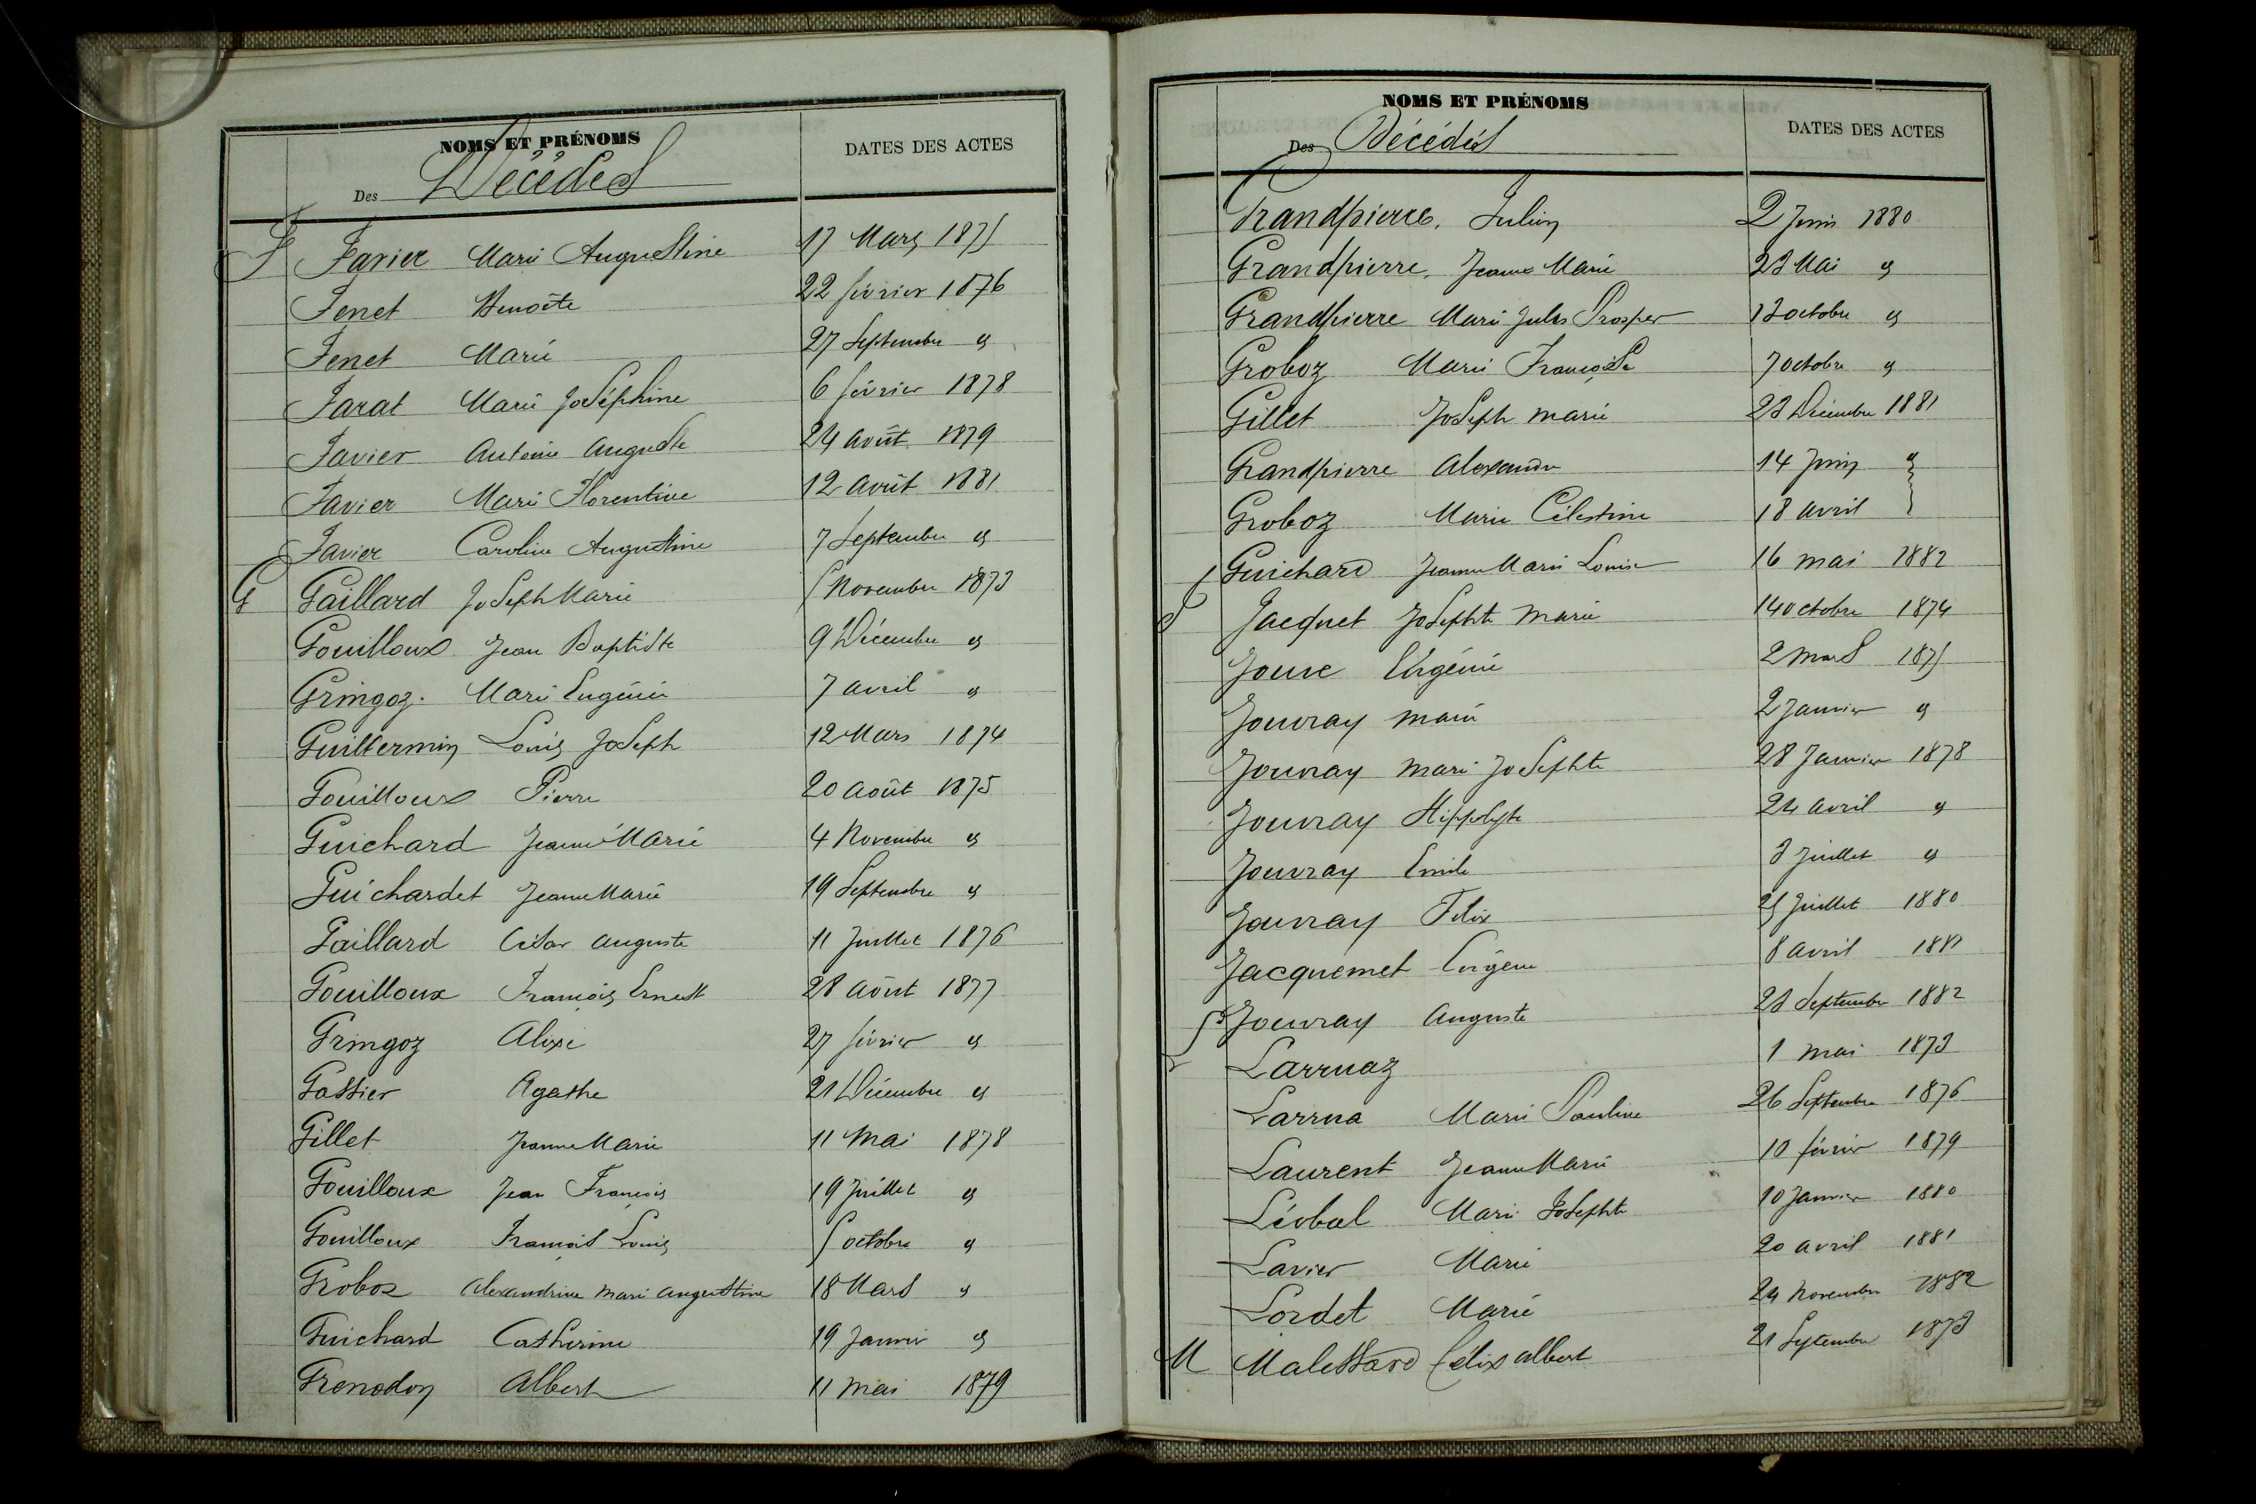 NOMS ET PRÉNOMS
Des Décédés
DATES DES ACTES
F Favier Marie Augustine 17 Mars 1875
Fenet Benoîte 22 février 1876
Fenet Marie 27 Septembre "
Farat Marie Joséphine 6 février 1878
Favier Antoine Auguste 24 août 1879
Favier Marie Florentine 12 août 1881
Favier Caroline Augustine 7 Septembre "
G Gaillard Joseph Marie 5 Novembre 1873
Gouilloux Jean Baptiste 9 Décembre "
Gringoz. Marie Eugénie 7 avril "
Guillermin Louis Joseph 12 Mars 1874
Gouilloux Pierre 20 août 1875
Guichard Jeanne Marie 4 Novembre "
Guichardet Jeanne Marie 19 Septembre "
Gaillard César auguste 11 Juillet 1876
Gouilloux François Ernest 28 août 1877
Gringoz Alexi 27 février "
Gassier Agathe 21 Décembre "
Gillet Jeanne Marie 11 Mai 1878
Gouilloux Jean François 19 Juillet "
Gouilloux François Louis 5 octobre "
Groboz Alexandrine Marie augustine 18 Mars "
Guichard Catherine 19 Janvier "
Grenodon Albert 11 mai 1879
NOMS ET PRÉNOMS
Des Décédés
DATES DES ACTES
Grandpierre. Julien 2 Juin 1880
Grandpierre. Jeanne Marie 23 Mai "
Grandpierre Marie Jules Prosper 13 octobre "
Groboz Marie Françoise 7 octobre "
Gillet Joseph marie 23 Décembre 1881
Grandpierre Alexandre 14 Juin "
Groboz Marie Célestine 18 avril "
Guichard Jeanne Marie Louise 16 mai 1882
J Jacquet Josephte Marie 14 octobre 1874
Jouve Virgénie 2 mars 1875
Jouvray Marie 2 Janvier "
Jouvray Marie Josephte 28 Janvier 1878
Jouvray Hippolyte 24 avril "
Jouvray Emile 3 Juillet "
Jouvray Félix 25 Juillet 1880
Jacquemet Eugène 8 avril 1881
Jouvray Auguste 23 Septembre 1882
L Larruaz 1 mai 1873
Larrua Marie Pauline 26 Septembre 1876
Laurent Jeanne Marie 10 février 1879
Léobal Marie Josephte 10 Janvier 1880
Lavier Marie 20 avril 1881
Lordet Marie 24 Novembre 1882
M Malessard Félix albert 21 Septembre 1873